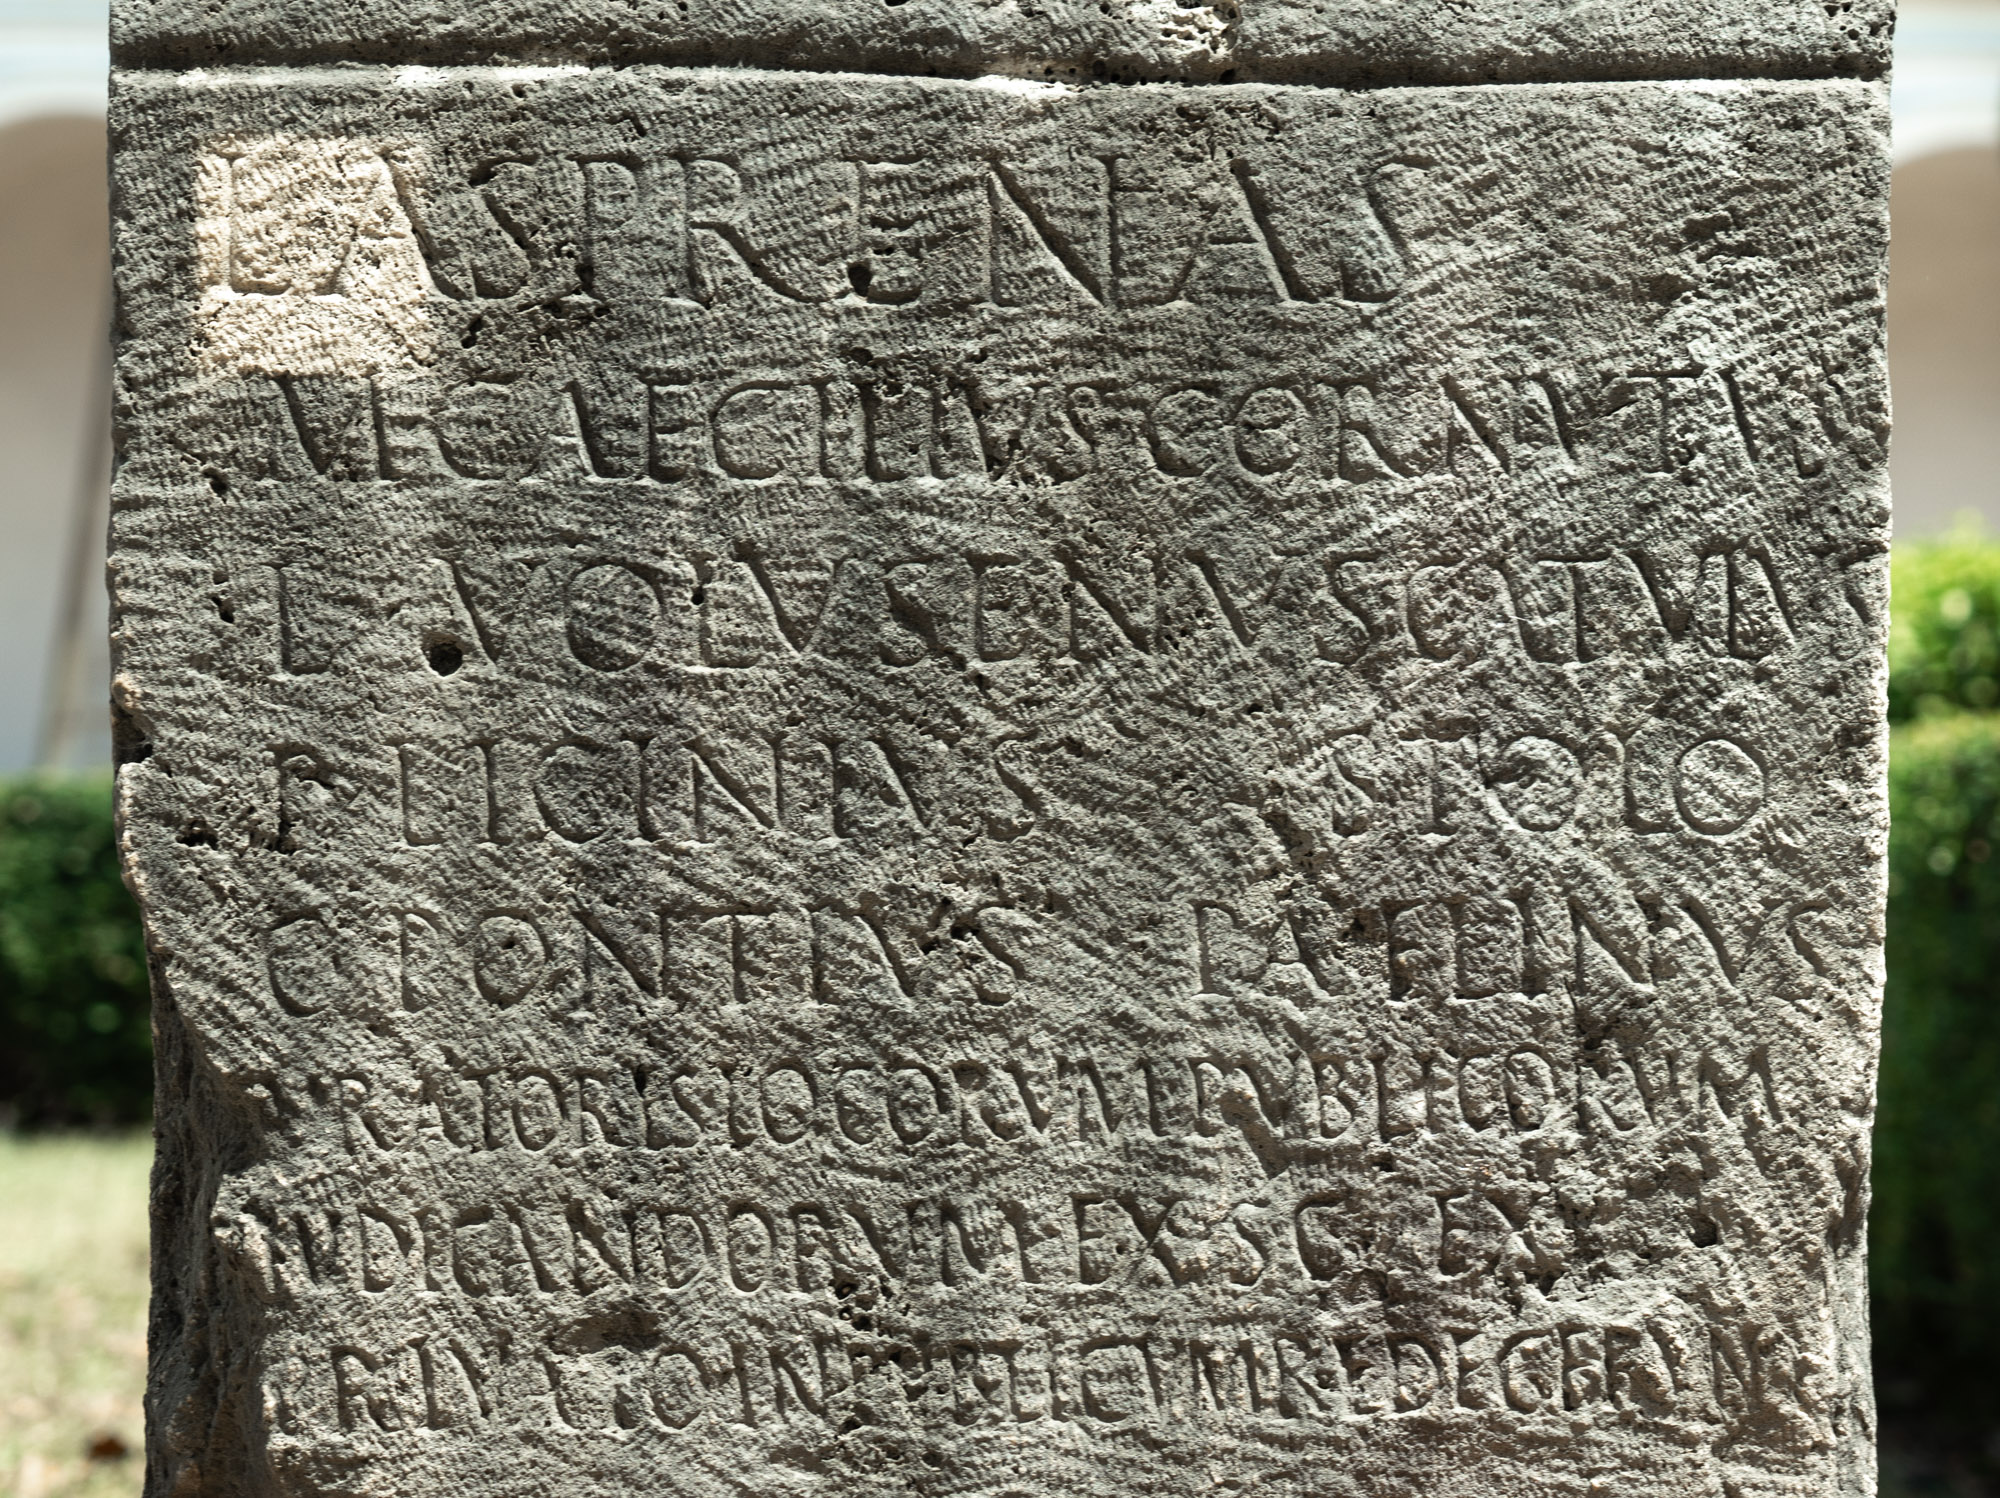 L ASPRENAS
M CAECILIVS CORNVT IN
L VOLVSENVS CATVLVS
P LICINIVS STOLO
C PONTIVS PAELINVS
CVRATORES LOCORVM PVBLICORVM
IVDICANDORVM EX S C EX
PRIVATO IN PVBLICVM REDEGERVNT